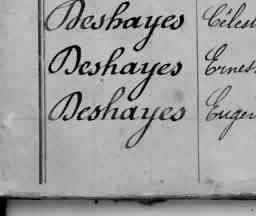 Deshayes Célest
Deshayes Ernest
Deshayes Eugen